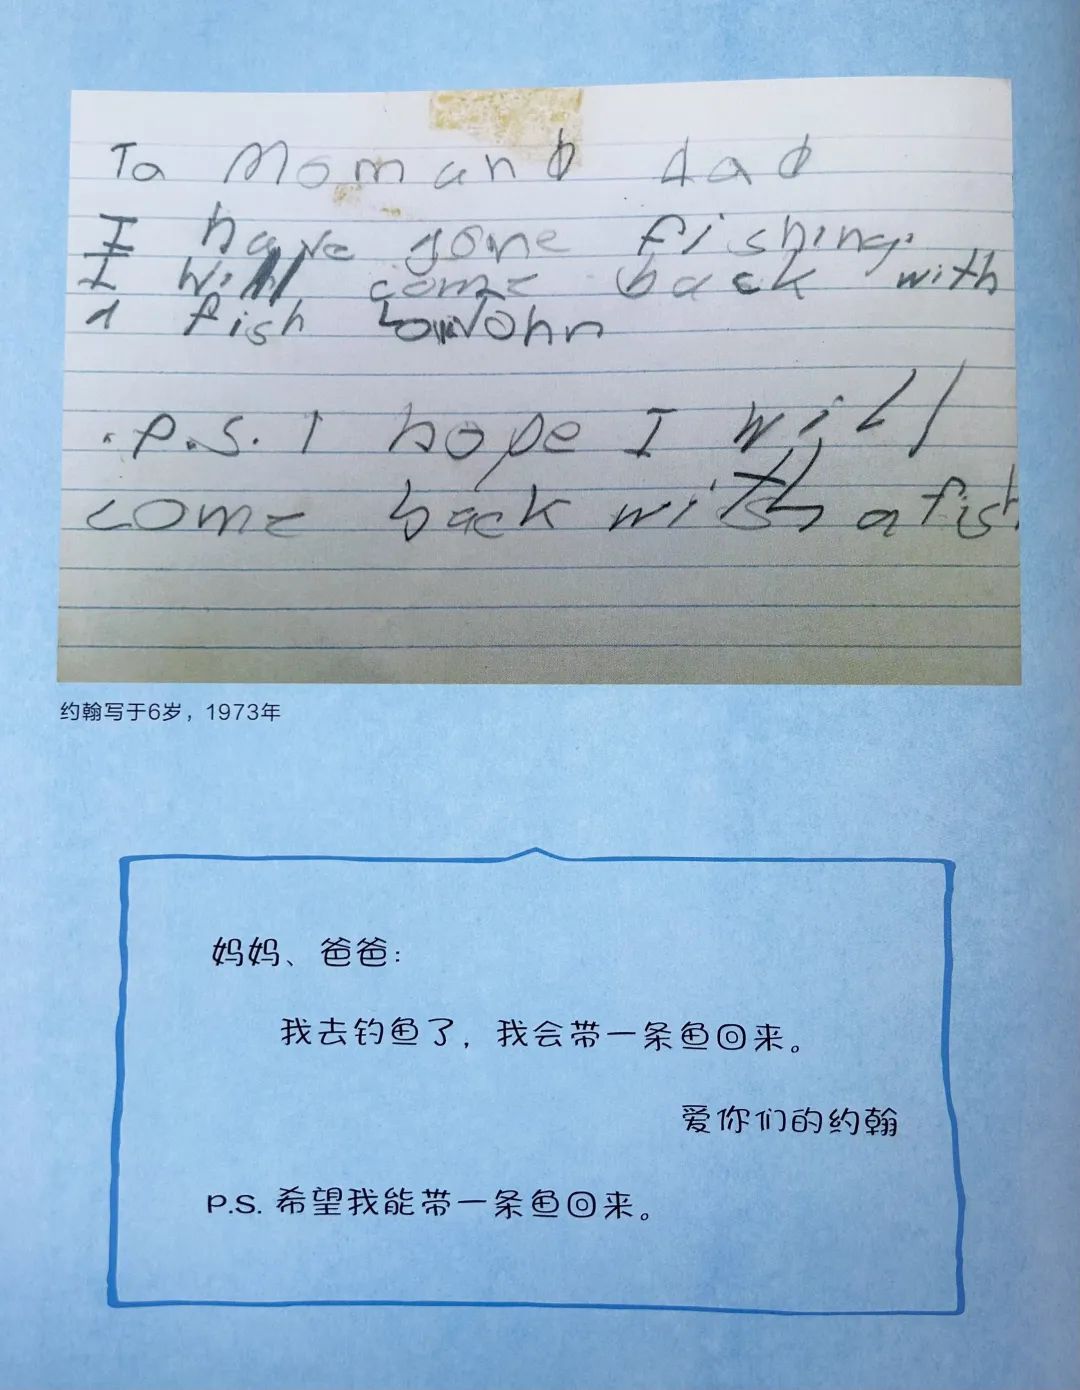 To Mom and dad
I have gone fishing.
I will come back with
1 fish John
.P.S. I hope I will
come back with a fish
约翰写于6岁，1973年
妈妈、爸爸：
我去钓鱼了，我会带一条鱼回来。
爱你们的约翰
P.S. 希望我能带一条鱼回来。